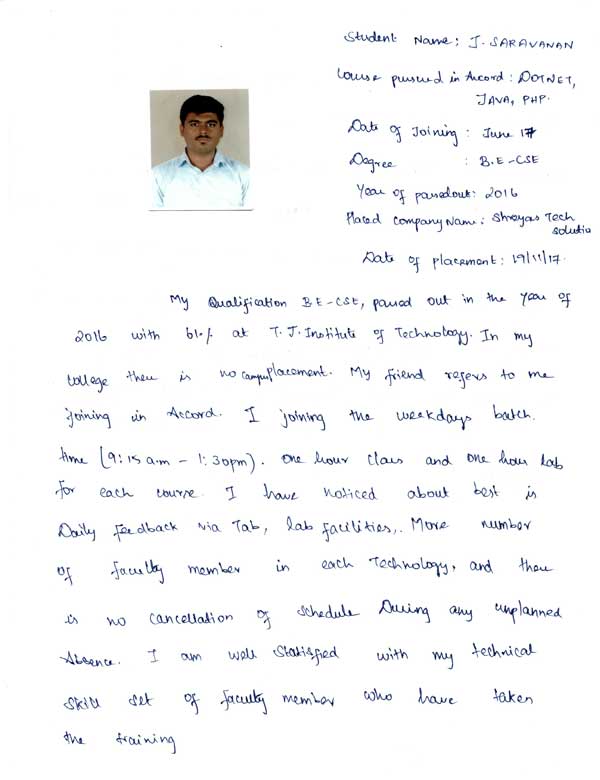 Student Name: J. SARAVANAN
Course pursued in Accord: DOTNET,
JAVA, PHP.
Date of Joining: June 17
Degree : B.E-CSE
Year of passedout: 2016
Placed Company Name: Shreyas Tech
solutio
Date of placement: 19/11/17.
My Qualification B.E-CSE, passed out in the year of
2016 with 61% at T.J. Institute of Technology. In my
college there is no campus placement. My friend refers to me
joining in Accord. I joining the weekdays batch.
time (9:15 a.m - 1:30pm). one hour class and one hour lab
for each course. I have noticed about best is
Daily feedback via Tab, lab facilities,. More number
of faculty member in each Technology, and there
is no cancellation of schedule During any unplanned
Absence. I am well Statisfied with my technical
skill set of faculty member who have taken
the training